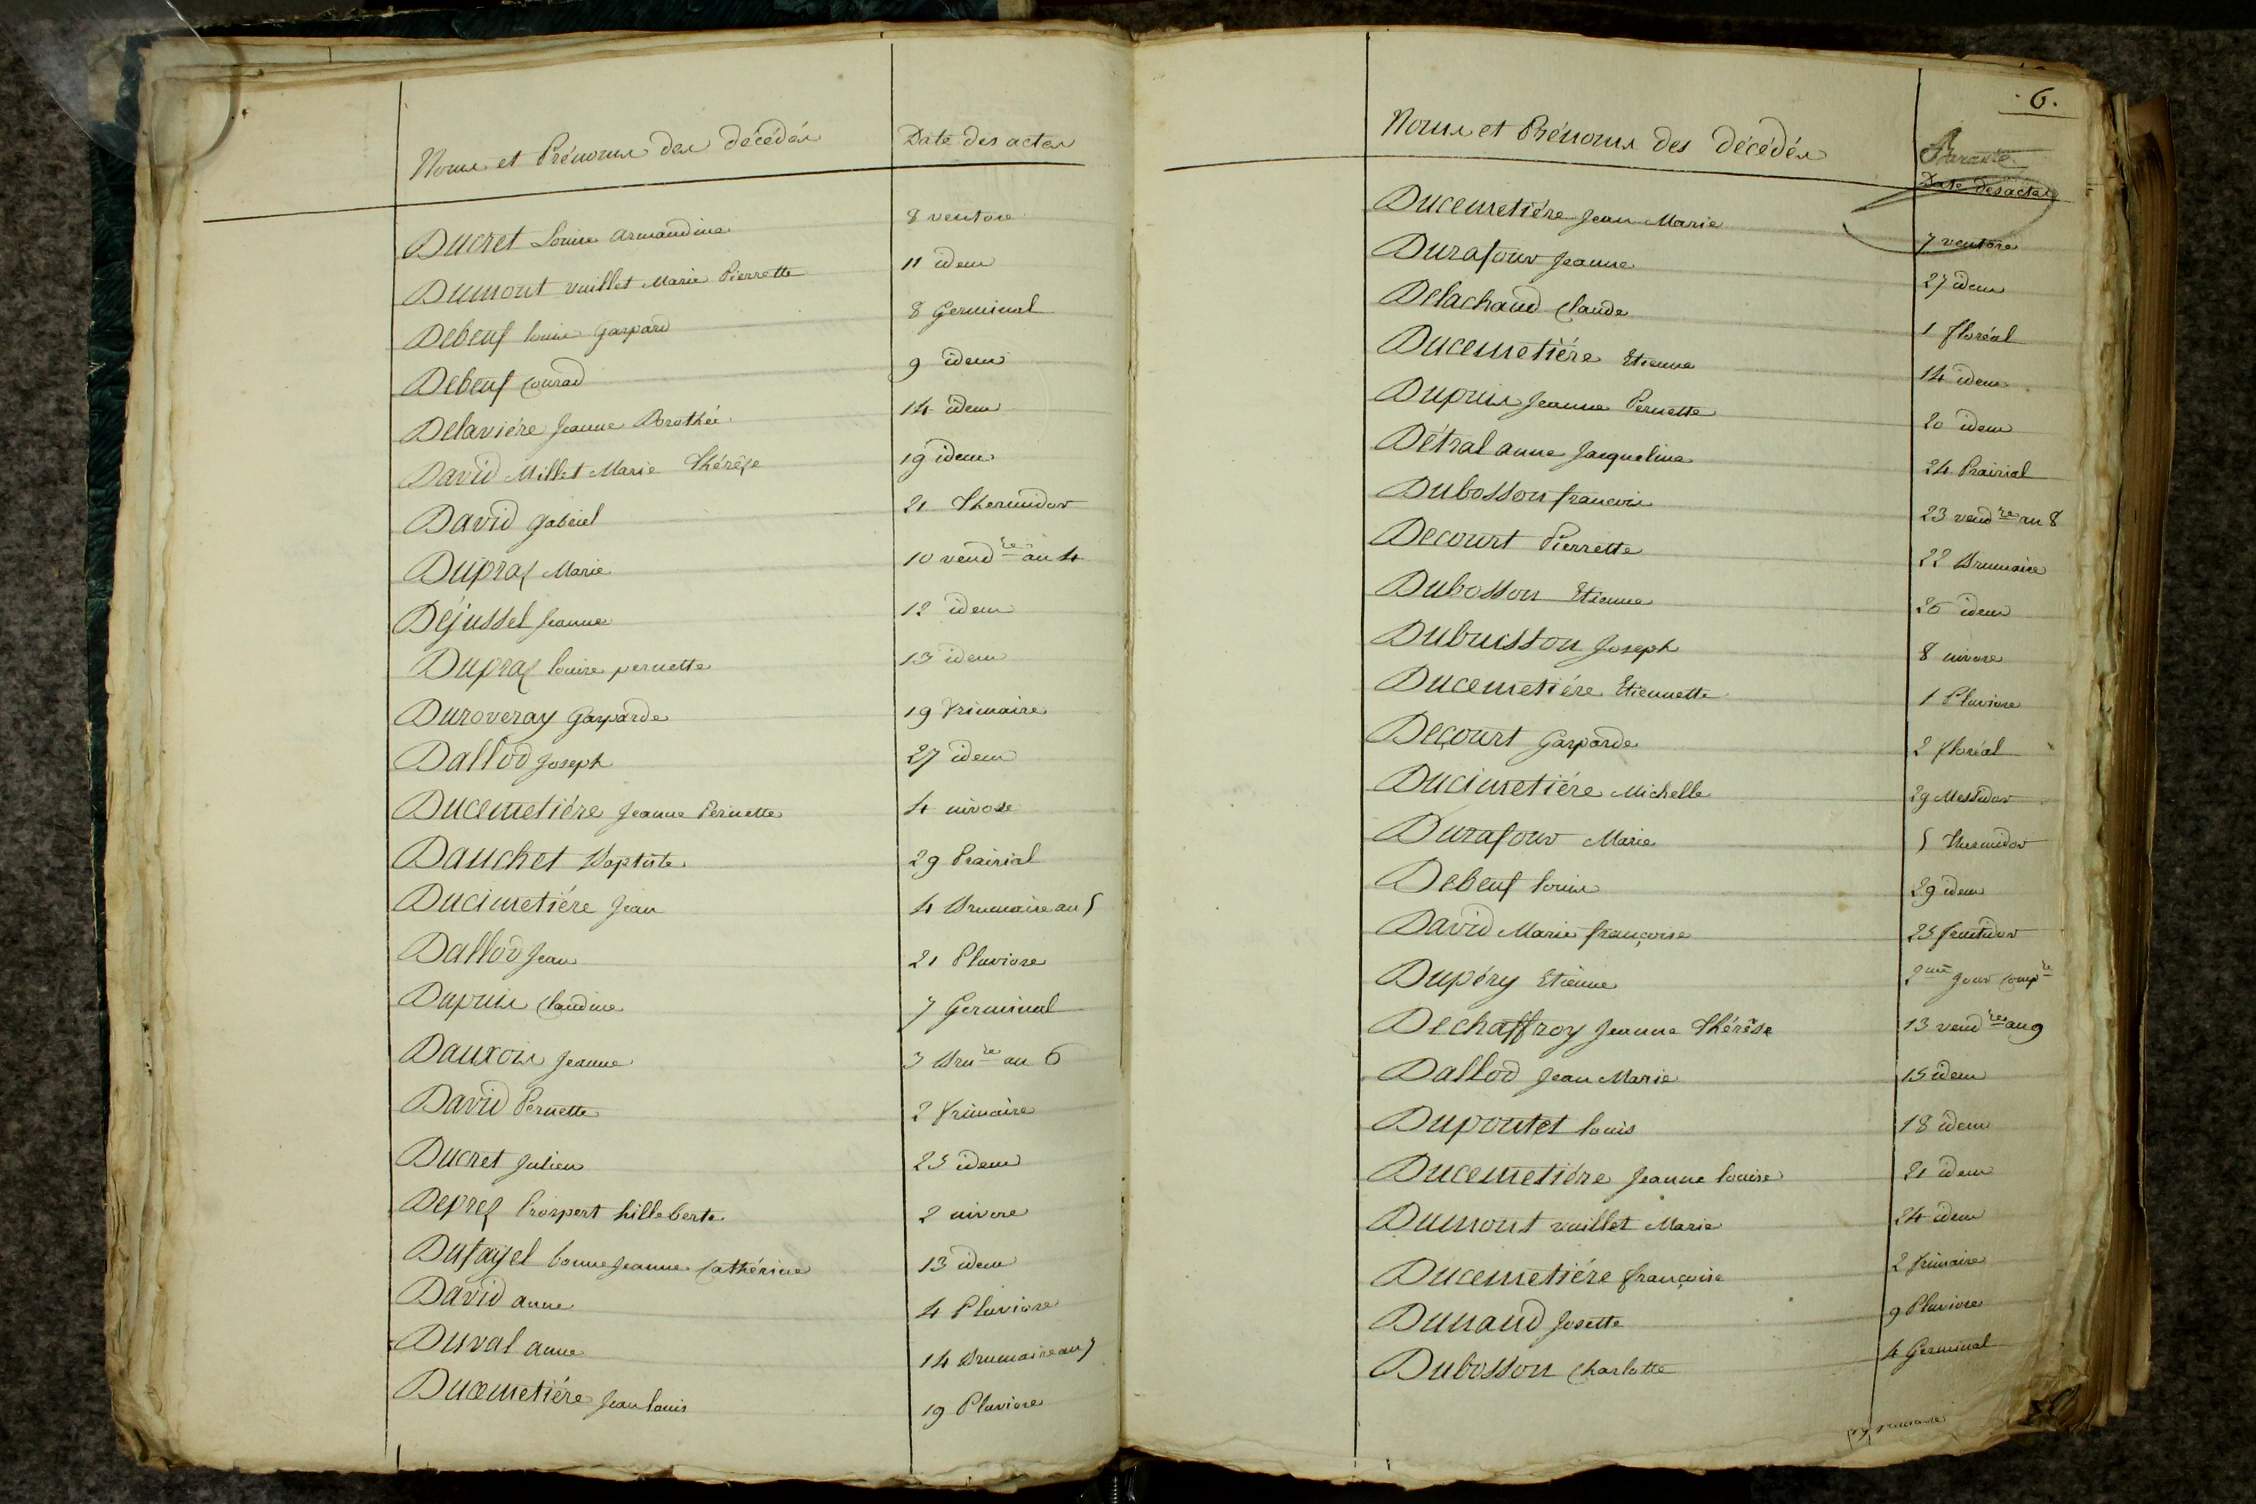 Noms et Prénoms des décédés Date des actes
Ducret Louise armandine 8 ventose
Dumont vuillet Marie Pierrette 11 idem
Debeuf louis Gaspard 8 Germinal
Debeuf Conrad 9 idem
Delaviére Jeanne Dorothée 14 idem
David Millet Marie Thérèse 19 idem
David Gabriel 21 Thermidor
Dupraz Marie 10 vend.re an 4
Déjussel Jeanne 12 idem
Dupraz louise pernette 13 idem
Duroveray Gasparde 19 frimaire
Dallod Joseph 27 idem
Ducemetiére Jeanne Pernette 4 nivose
Dauchet Baptiste 29 Prairial
Ducimetiére Jean 4 Brumaire an 5
Dallod Jean 21 Pluviose
Dupuis Claudine 7 Germinal
Dauxois Jeanne 3 Bru.re an 6
David Pernette 2 frimaire
Ducret Julien 25 idem
Deprez Prospert hilleberte 2 nivose
Dufayel bonne Jeanne Cathérine 13 idem
David anne 4 Pluviose
Duval anne 14 Brumaire an 7
Ducemetiére Jean louis 19 Pluviose
. 6 .
Noms et Prénoms des décédés
Date des actes
Ducemetiére Jean Marie 7 ventose
Durafour Jeanne 27 idem
Delachaud Claude 1 floréal
Ducemetiére Etienne 14 idem
Dupuis Jeanne Pernette 20 idem
Détral anne Jacqueline 24 Prairial
Dubosson francois 23 vend.re an 8
Decourt Pierrette 22 Brumaire
Dubosson Etienne 26 idem
Dubuisson Joseph 8 nivose
Ducemetiére Etiennette 1 Pluviose
Decourt Gasparde 2 floréal
Ducimetiére Michelle 29 Messidor
Durafour Marie 5 Thermidor
Debeuf louis 29 idem
David Marie françoise 25 fructidor
Dupéry Etienne 2me jour comp.re
Dechaffroy Jeanne Thérèse 13 vend.re an 9
Dallod Jean Marie 15 idem
Dupontet louis 18 idem
Ducemetiére Jeanne louise 21 idem
Dumont vuillet Marie 24 idem
Ducemetiére françoise 2 frimaire
Dunand Josette 9 Pluviose
Dubosson Charlotte 4 Germinal